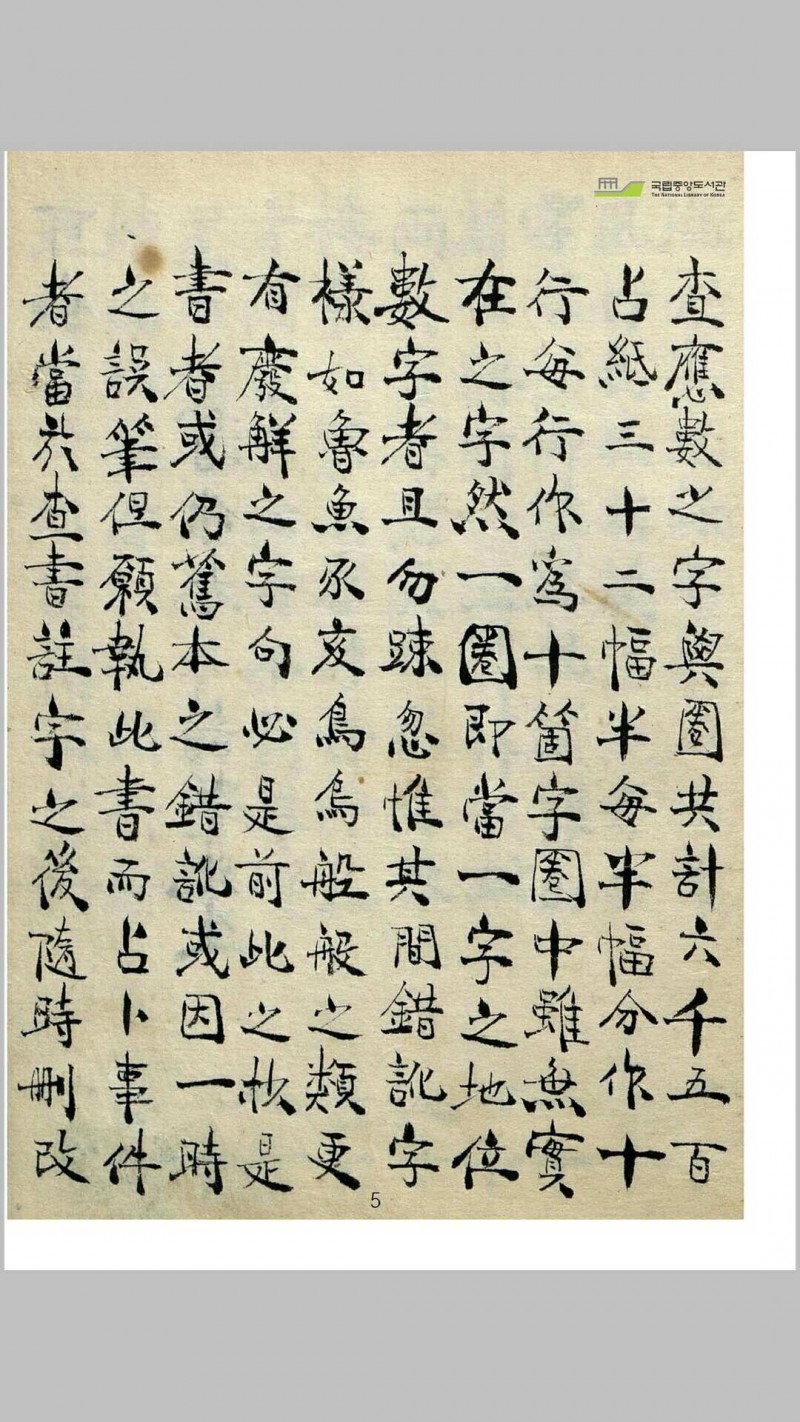 국립중앙도서관
THE NATIONAL LIBRARY OF KOREA
查應數之字與圈共計六千五百
占紙三十二幅半每半幅分作十
行每行作寫十箇字圈中雖無實
在之字然一圈即當一字之地位
數字者且勿踈忽惟其間錯訛字
樣如魯魚豕亥鳥烏般般之類更
有廢觧之字句必是前此之校是
書者或仍舊本之錯訛或因一時
之誤筆但願執此書而占卜事件
者當於查書註字之後隨時刪改
5